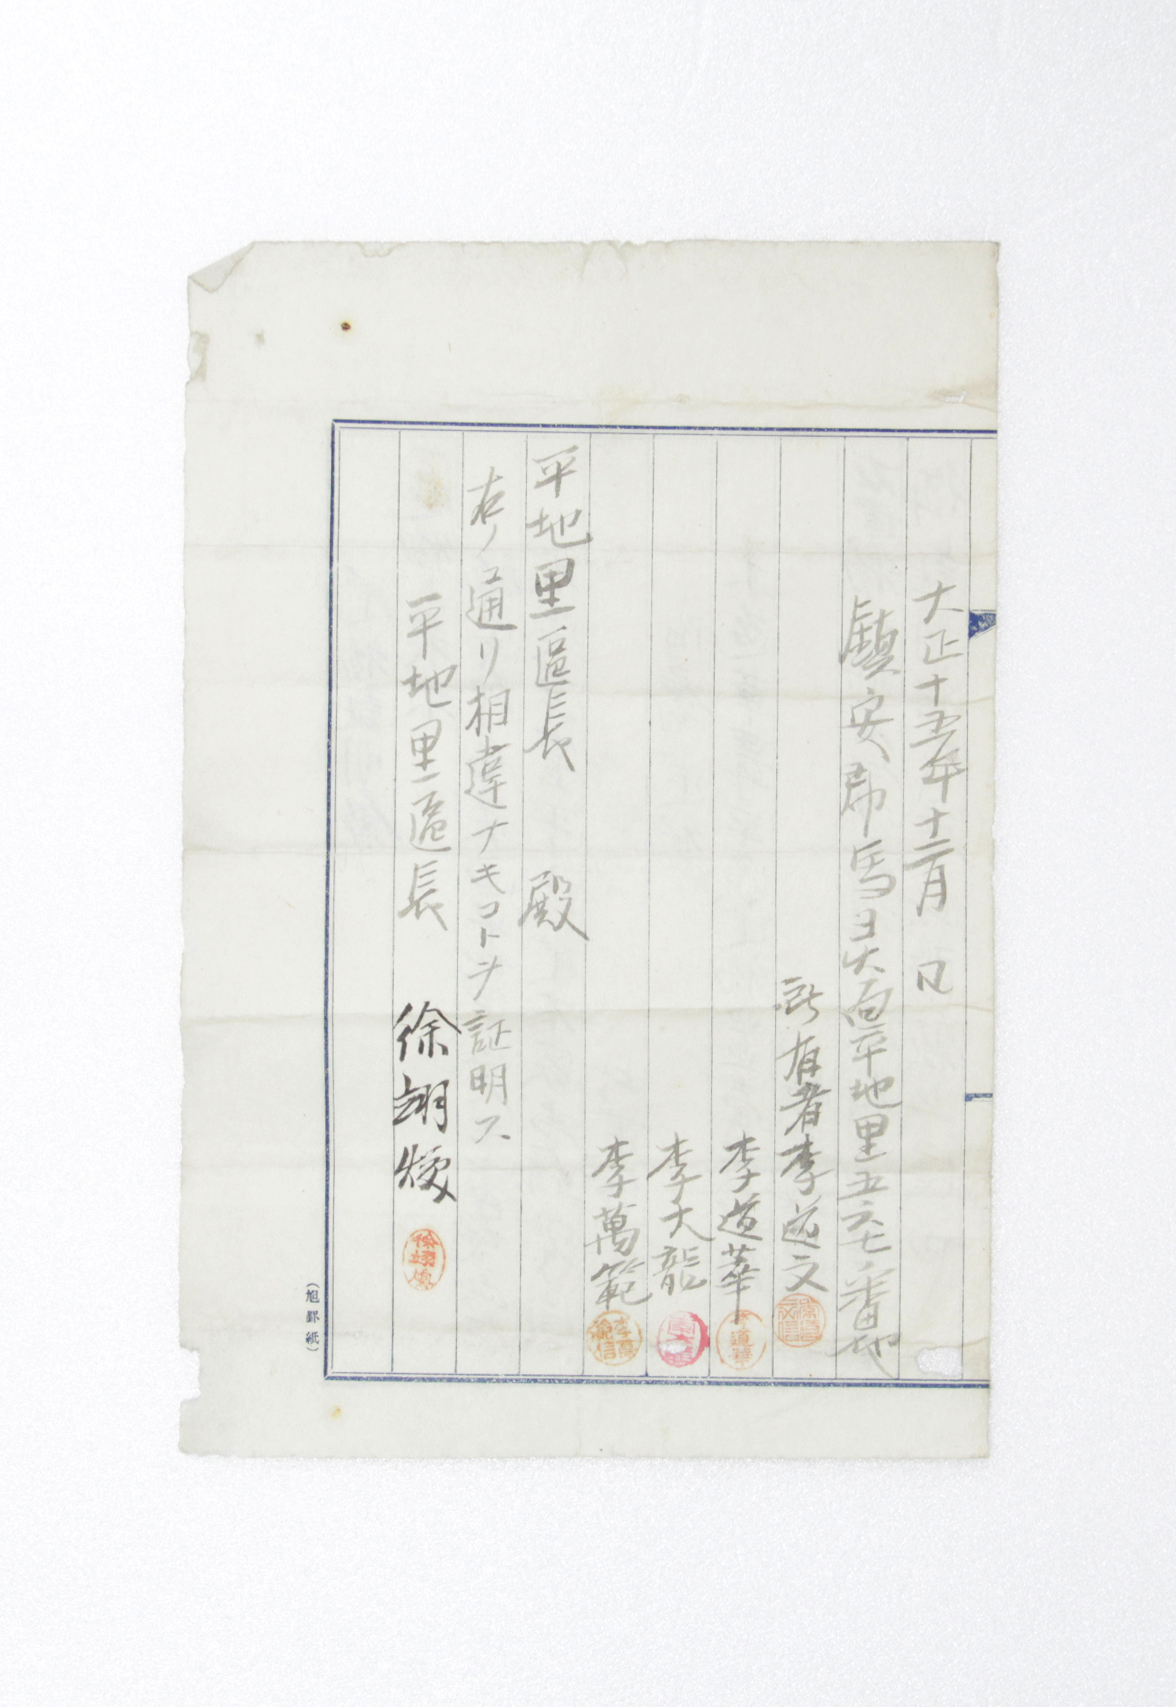 大正十五年十二月 日
鎭安郡馬灵面平地里五六七番地
所有者李道文
李道華
李大龍
李萬範
平地里區長 殿
右ノ通リ相違ナキコトヲ証明ス
平地里區長 徐翊
(旭罫紙)
道華